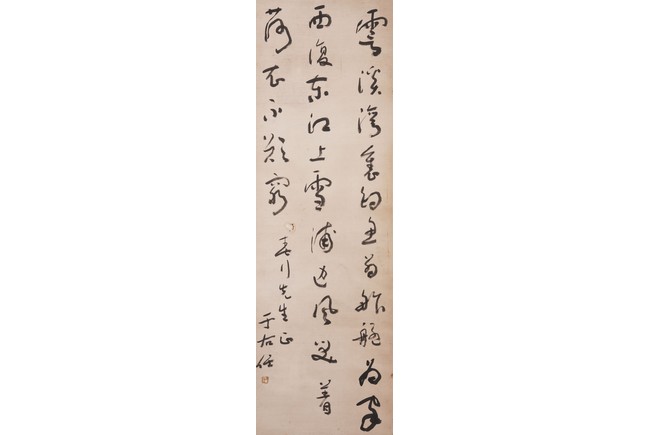 霅溪灣裏釣魚翁舴艋為家
西復東江上雪浦邊風笑着
荷衣不歎窮
川先生正
于右任